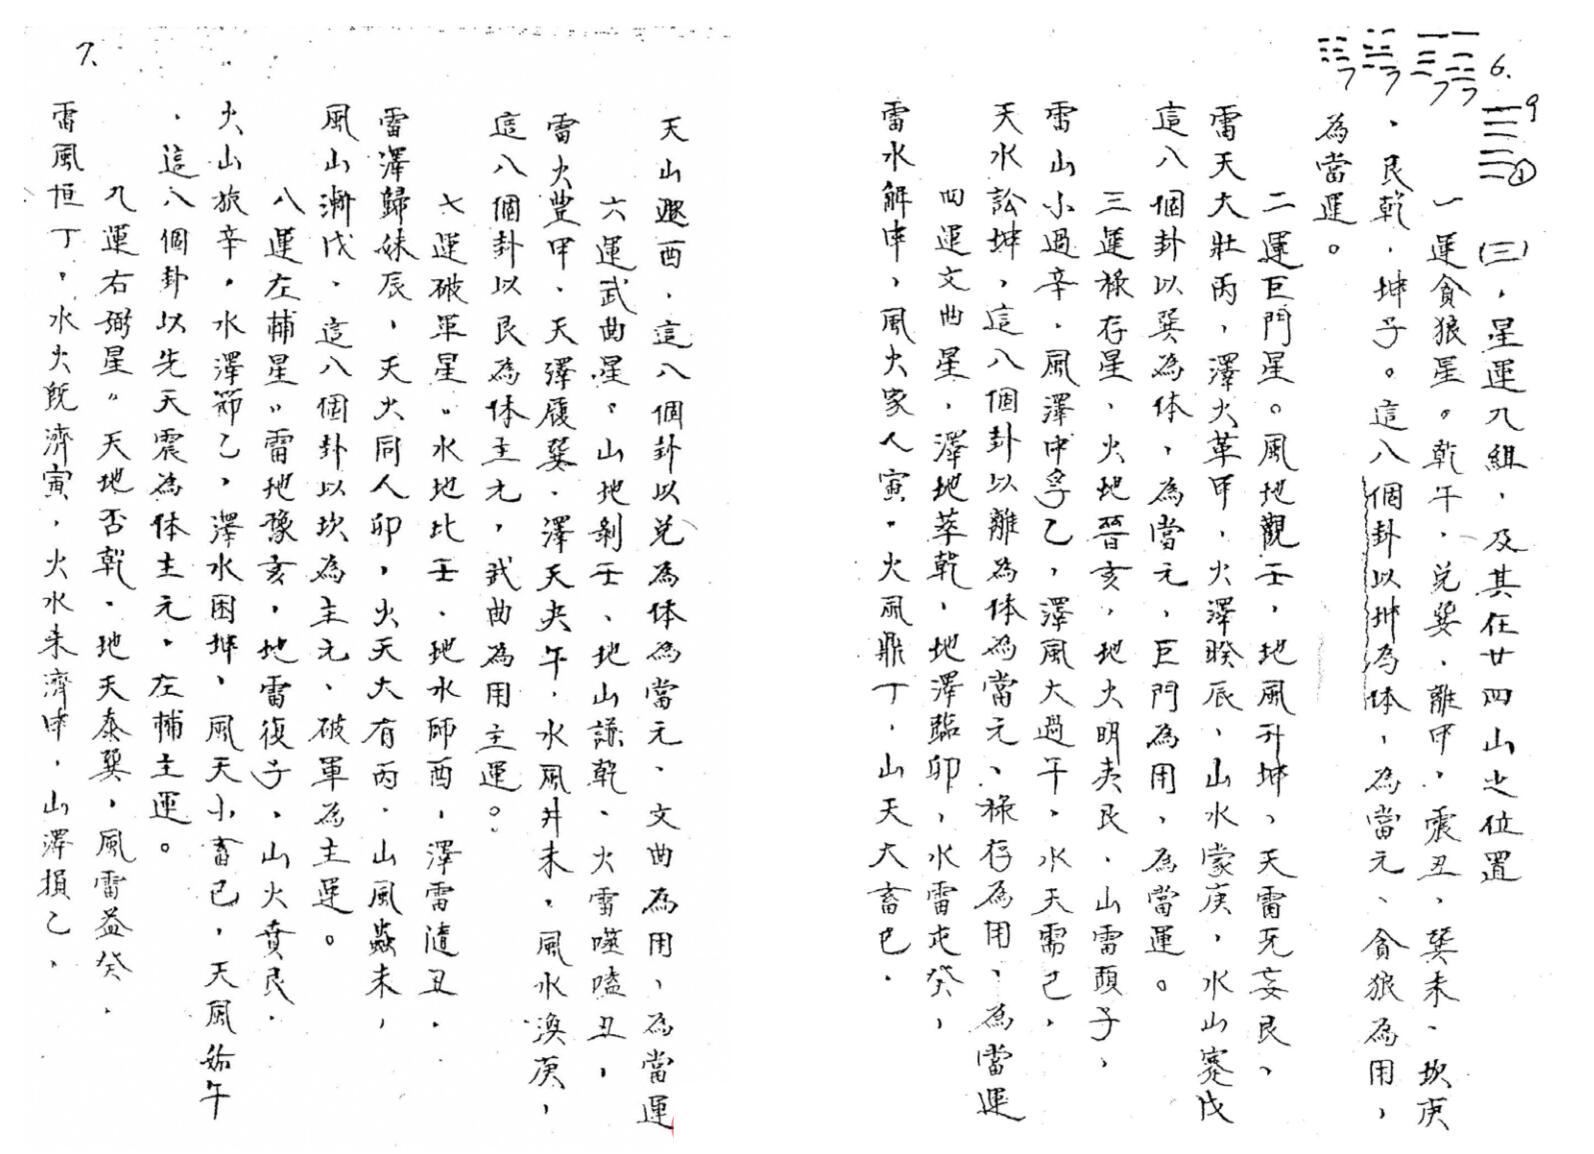 6.
9
①
7 7 7 7
(三)，星運九組，及其在廿四山之位置
一運貪狼星。乾午，兌巽、離甲，震丑、巽未、坎庚
、艮乾，坤子。這八個卦以坤為体，為當元、貪狼為用，
為當運。
二運巨門星。風地觀壬，地風升坤、天雷旡妄艮、
雷天大壯丙，澤火革甲，火澤暌辰、山水蒙庚，水山蹇戌
這八個卦以巽為体，為當元，巨門為用，為當運。
三運祿存星、火地晉亥，地火明夷艮、山雷頤子，
雷山小過辛．風澤中孚乙，澤風大過午。水天需己，
天水訟坤，這八個卦以離為体為當元、祿存為用、為當運
四運文曲星，澤地萃乾，地澤臨卯，水雷屯癸，
雷水解申，風火家人寅。火風鼎丁．山天大畜巳．
7.
天山遯酉．這八個卦以兌為体為當元、文曲為用、為當運
六運武曲星。山地剝壬、地山謙乾、火雷噬嗑丑，
雷火豐甲、天澤履巽．澤天夬午．水風井未．風水渙庚，
這八個卦以艮為体主元，武曲為用主運。
七運破軍星。水地比壬、地水師酉，澤雷隨丑．
雷澤歸妹辰，天火同人卯，火天大有丙．山風蠱未，
風山漸戌、這八個卦以坎為主元、破軍為主運。
八運左輔星。雷地豫亥，地雷復子、山火賁艮．
火山旅辛．水澤節乙，澤水困坤、風天小畜己，天風姤午
．這八個卦以先天震為体主元．左輔主運。
九運右弼星。天地否乾．地天泰巽，風雷益癸．
雷風恒丁．水火既濟寅．火水未濟申．山澤損乙．